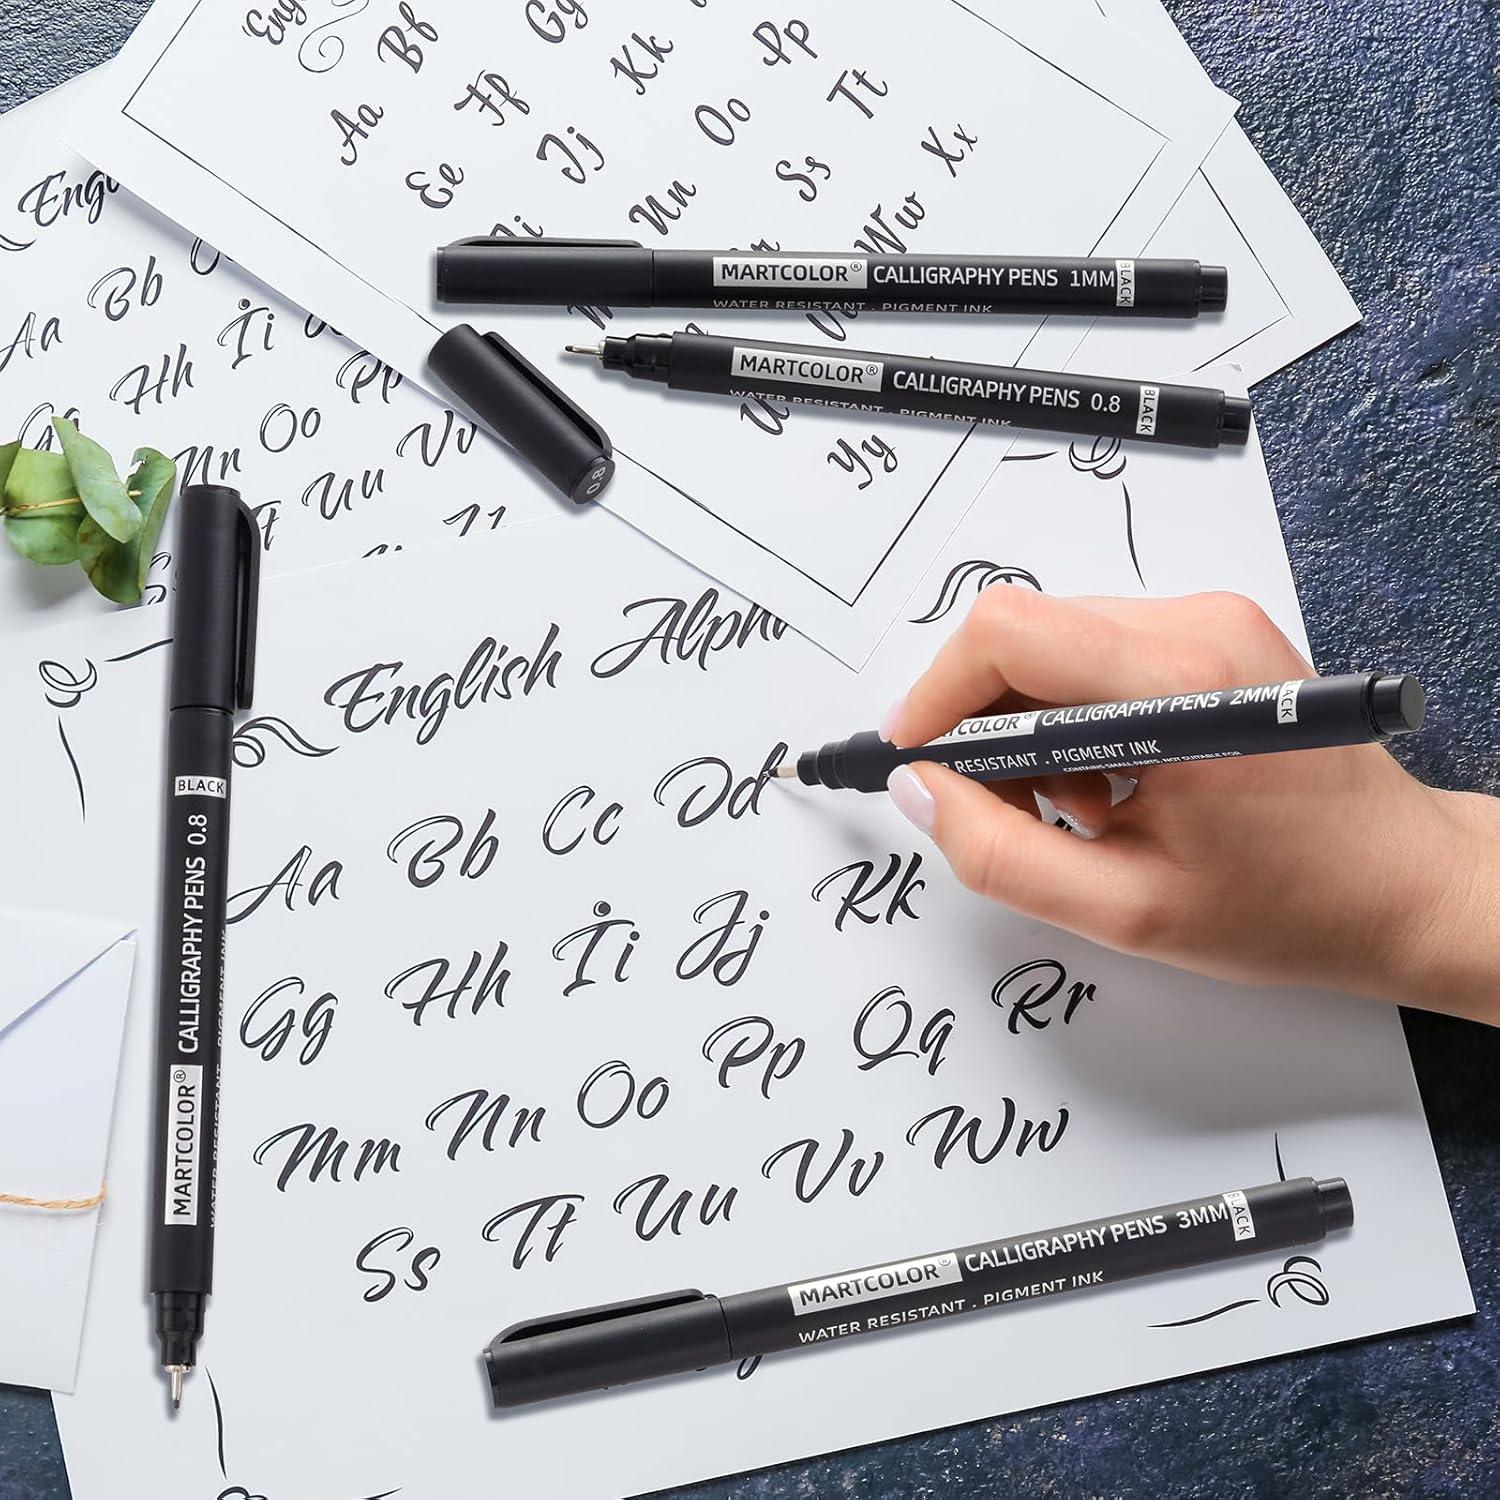 Engl
Bb
Gg
Aa
Ff
Kk
Pp
Ee
Jj
Oo
Tt
Nn
Ss
Xx
Ww
Yy
Engl
Aa Bb
Hh Ii
Gg Oo Pp
Nn Uu Vv
MARTCOLOR® CALLIGRAPHY PENS 1MM BLACK
WATER RESISTANT . PIGMENT INK
MARTCOLOR® CALLIGRAPHY PENS 0.8 BLACK
WATER RESISTANT . PIGMENT INK
0.8
MARTCOLOR® CALLIGRAPHY PENS 0.8 BLACK
WATER RESISTANT . PIGMENT INK
English Alph
TCOLOR® CALLIGRAPHY PENS 2MM BLACK
RESISTANT . PIGMENT INK
CONTAINS SMALL PARTS. NOT SUITABLE FOR
Aa Bb Cc Dd
Gg Hh Ii Jj Kk
Mm Nn Oo Pp Qq Rr
Ss Tt Uu Vv Ww
MARTCOLOR® CALLIGRAPHY PENS 3MM BLACK
WATER RESISTANT . PIGMENT INK